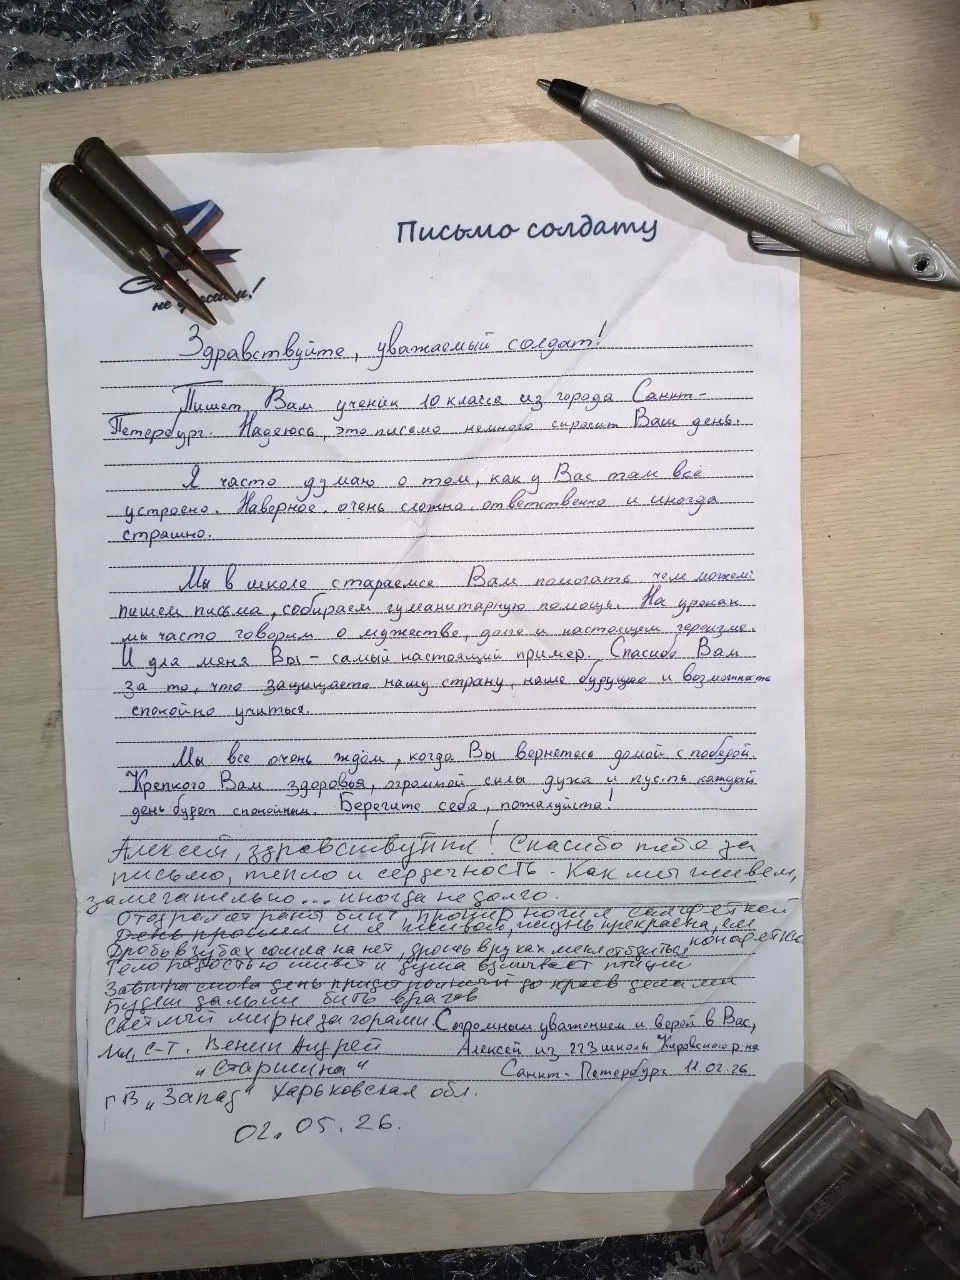 Письмо солдату
не
Здравствуйте, уважаемый солдат!
Пишет Вам ученик 10 класса из города Санкт-
Петербург. Надеюсь, это письмо немного скрасит Ваш день.
Я часто думаю о том, как у Вас там всё
устроено. Наверное, очень сложно, ответственно и иногда
страшно.
Мы в школе стараемся Вам помогать чем можем:
пишем письма, собираем гуманитарную помощь. На уроках
мы часто говорим о мужестве, долге и настоящем героизме.
И для меня Вы - самый настоящий пример. Спасибо Вам
за то, что защищаете нашу страну, наше будущее и возможность
спокойно учиться.
Мы все очень ждём, когда Вы вернетесь домой с победой.
Крепкого Вам здоровья, огромной силы духа и пусть каждый
день будет спокойным. Берегите себя, пожалуйста!
Алексей, здравствуйте! Спасибо тебе за
письмо, тепло и сердечность. Как мы живем,
замечательно... иногда недолго.
Отодрал от раны бинт, протер ноги я салфеткой
День прошел и я живой, жизнь прекрасна,
Дробь в зубах сошла на нет, дрожь в руках
Тело радостью живет и душа взлетает птицей
Завтра снова день придет до краев делами
Будем дальше бить врагов
Светлый мир не за горами. С огромным уважением и верой в Вас,
Мл. с-т. Венин Андрей Алексей из 223 школы Кировского р-на
"Старшина" Санкт-Петербург 11.02.26
ГВ "Запад" Харьковская обл.
02.05.26.